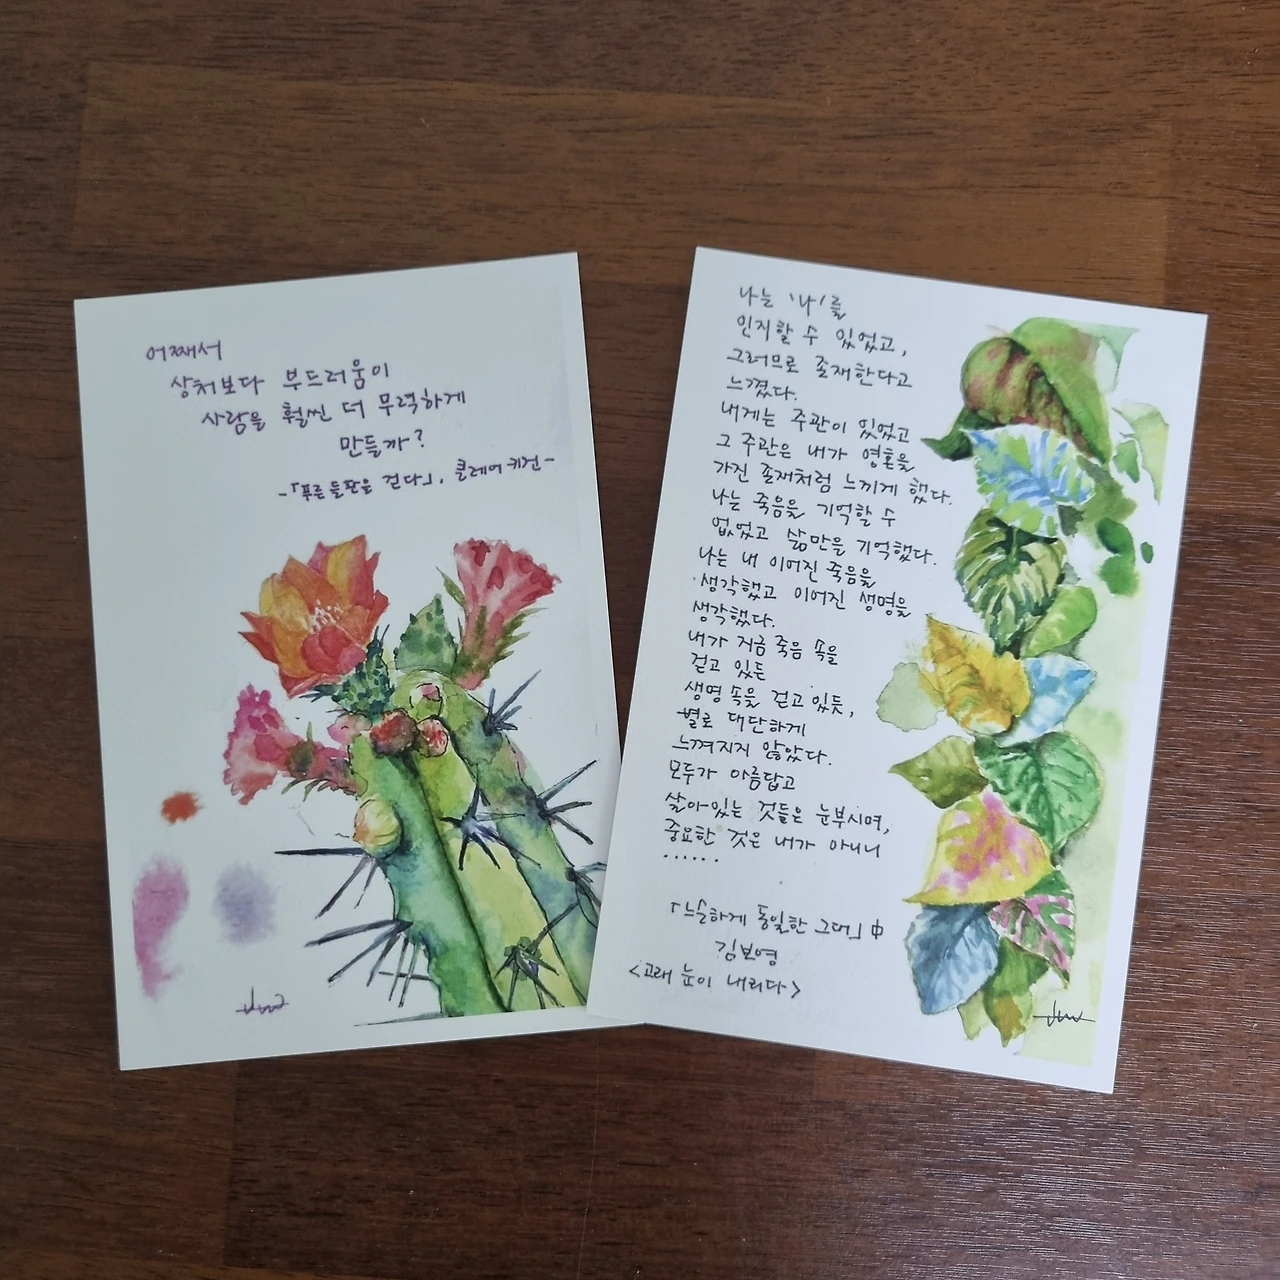 어째서
상처보다 부드러움이
사람을 훨씬 더 무력하게
만들까?
-「푸른 들판을 걷다」, 클레어 키건-
나는 '나'를
인지할 수 있었고,
그러므로 존재한다고
느꼈다.
내게는 주관이 있었고
그 주관은 내가 영혼을
가진 존재처럼 느끼게 했다.
나는 죽음을 기억할 수
없었고 삶만을 기억했다.
나는 내 이어진 죽음을
생각했고 이어진 생명을
생각했다.
내가 지금 죽음 속을
걷고 있든
생명 속을 걷고 있듯,
별로 대단하게
느껴지지 않았다.
모두가 아름답고
살아있는 것들은 눈부시며,
중요한 것은 내가 아니니
......
「느슬하게 동일한 그대」 中
김보영
<고래 눈이 내리다>